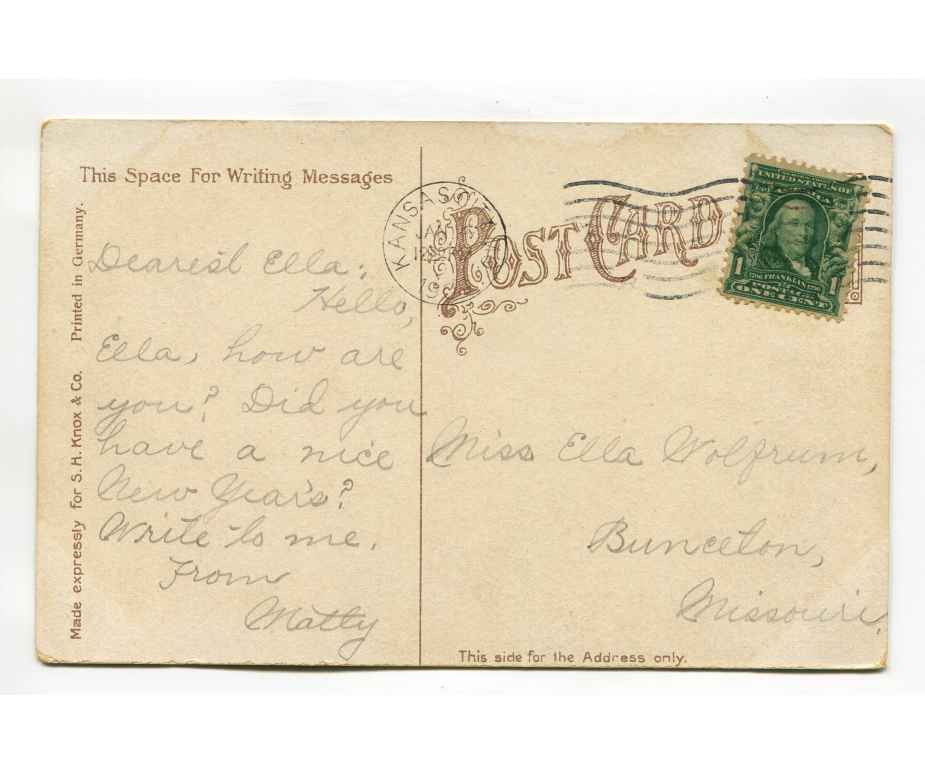 This Space For Writing Messages
Made expressly for S. H. Knox & Co. Printed in Germany.
Dearest Ella:
Hello,
Ella, how are
you? Did you
have a nice
New Years?
Write to me.
From
Matty
KANSAS
JAN
POST CARD
UNITED STATES OF
AMERICA
FRANKLIN
POSTAGE
1 ONE CENT 1
Miss Ella Wolfrum,
Bunceton,
Missouri.
This side for the Address only.